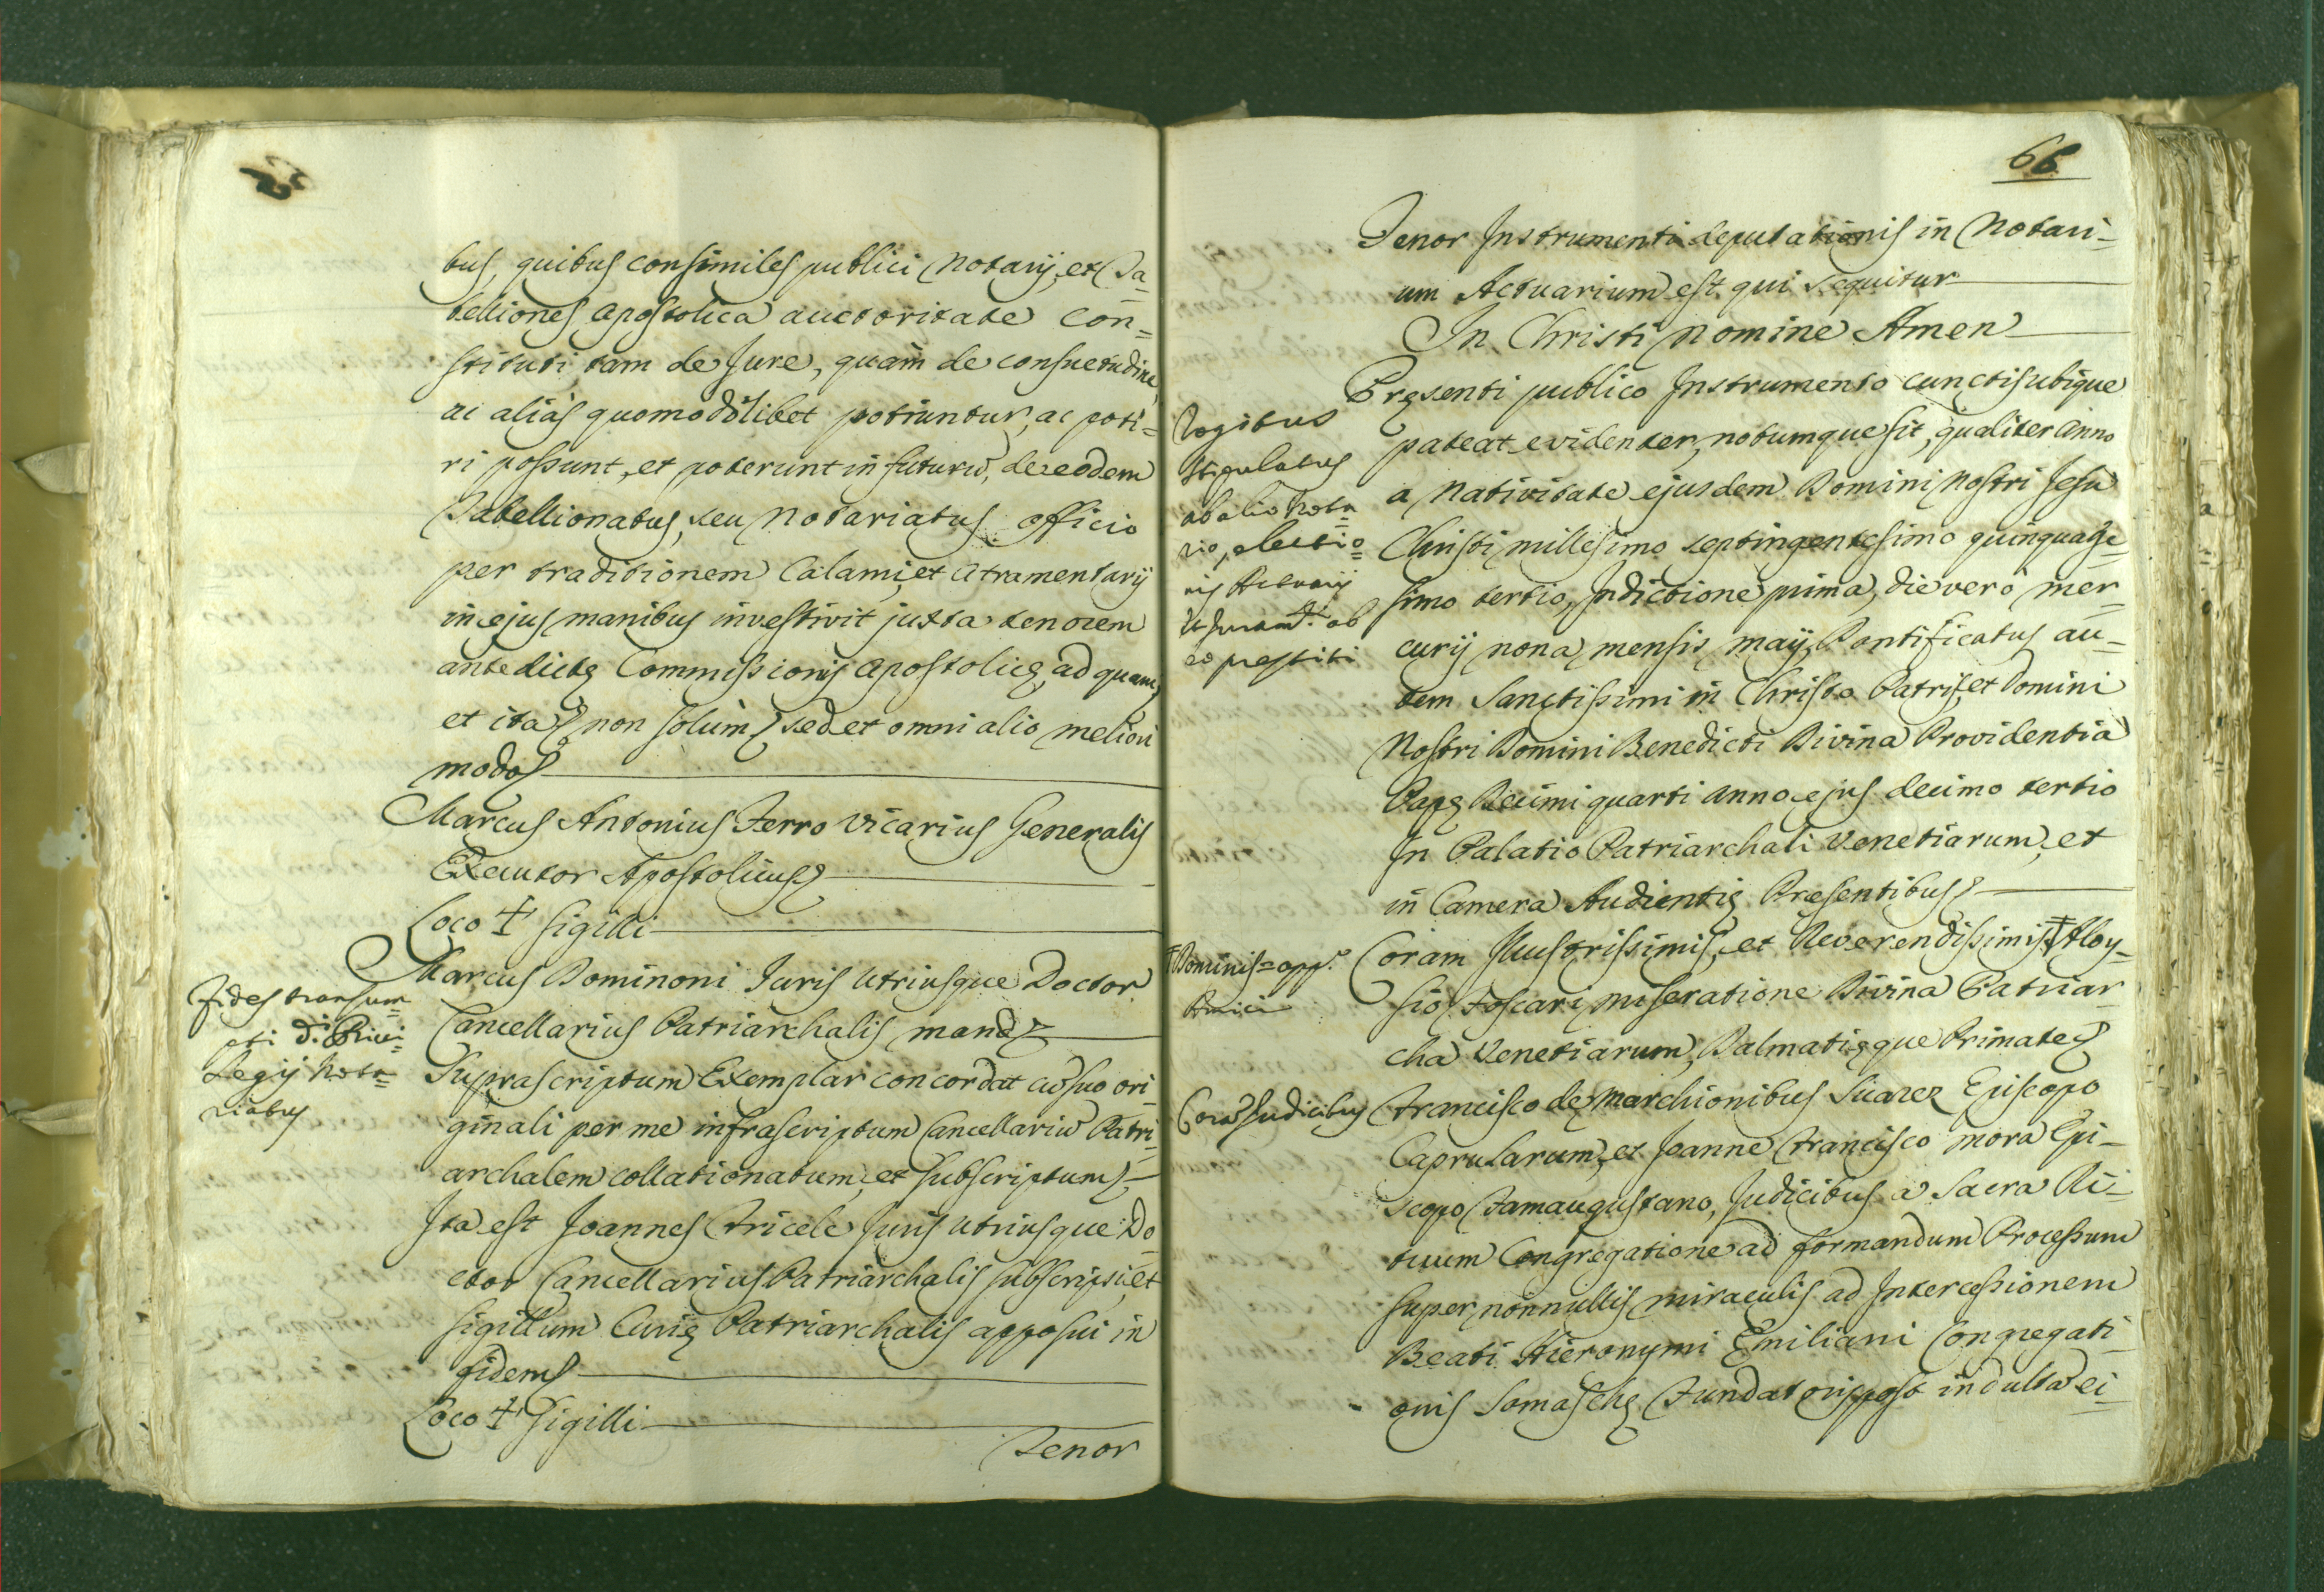 bus, quibus consimiles publici Notarij, et Ta=
belliones Apostolica auctoritate con=
stituti, tam de Jure, quam de consuetudine,
ac aliàs quomodolibet potiuntur, ac poti=
ri possunt, et poterunt in futurũ, de eodem
Tabellionatus, seu Notariatus officio
per traditionem Calami, et Atramentarij
in ejus manibus investivit juxta tenorem
antedictę Commissionis Apostolicę, ad quam,
et ita non solùm, sed et omni alio meliori
modo
Marcus Antonius Ferro Vicarius Generalis
Executor Apostolicus
Loco + Sigilli
Marcus Dominoni Juris Utriusque Doctor
Cancellarius Patriarchalis mand.
Fides transum=
pti di Privi=
Legij Nota=
riatus
Suprascriptum Exemplar concordat cũ suo ori=
ginali per me infrascriptum Cancellariũ Patri=
archalem collationatum, et subscriptum
Ita est Joannes Fricele Juris Utriusque Do=
ctor Cancellarius Patriarchalis subscripsi, et
sigillum Curię Patriarchalis apposui in
fidem
Loco + Sigilli
Tenor
66
Tenor Instrumenti deputationis in Notari=
um Actuarium est qui sequitur
In Christi Nomine Amen
Pręsenti publico Instrumento cunctis ubique
pateat evidenter, notumque sit, qualiter Anno
a Nativitate ejusdem Domini Nostri Jesu
Christi millesimo septingentesimo quinquage=
simo tertio, Indictione prima, die verò Mer=
curij nona mensis Maij, Pontificatus au=
tem Sanctissimi in Christo Patris, et Domini
Nostri Domini Benedicti Divina Providentia
Papę Decimi quarti Anno ejus decimo tertio
In Palatio Patriarchali Venetiarum, et
in Camera Audientię Presentibus
Rogitus
stipulatus
ab alio Nota=
rio, electio=
nis Actuarij
et Juram.ti ab
eo prestiti
Coram Illustrissimis, et Reverendissimis ‡ Aloy=
sio Foscari miseratione Divina Patriar=
cha Venetiarum, Dalmatięque Primate
‡ Dominis = app.
Francisco de Marchionibus Suarez Episcopo
Caprularum, et Joanne Francisco Mora Epi=
scopo Famaugustano, Judicibus a Sacra Ri=
tuum Congregatione ad formandum Processum
super nonnullis miraculis ad Intercessionem
Beati Hieronymi Emiliani Congregati=
onis Somaschę Fundatoris post indulta ei=
Corã Judicibus